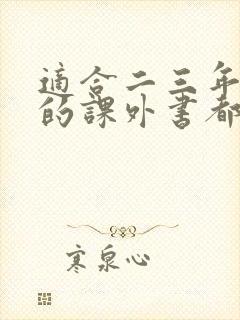 適合二三年
的課外書都
寒泉心